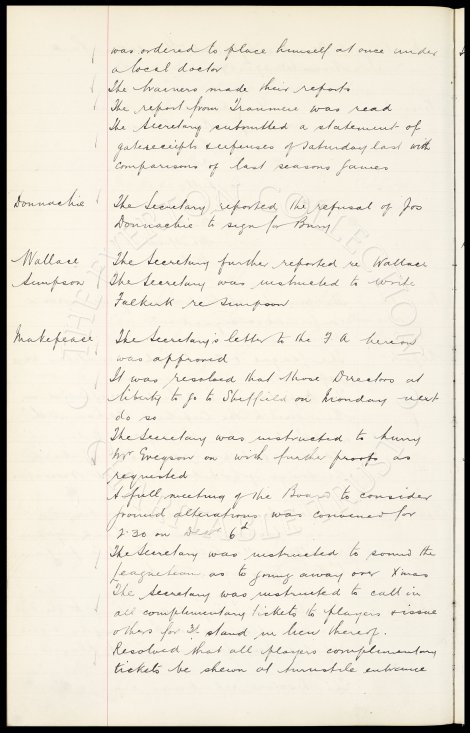 was ordered to place himself at once under
a local doctor
The trainers made their reports
The report from Tranmere was read
The Secretary submitted a statement of
gatereceipts & expenses of Saturday last with
comparisons of last seasons games
Donnachie The Secretary reported the refusal of Joe
Donnachie to sign for Bury
Wallace The Secretary further reported re Wallace
Simpson The Secretary was instructed to write
Falkirk re Simpson
Makepeace The Secretary's letter to the F A hereon
was approved
It was resolved that those Directors at
liberty to go to Sheffield on Monday next
do so
The Secretary was instructed to hurry
Mr on with further proofs as
requested
A full meeting of the Board to consider
ground alterations was convened for
2.30 on Dec 6th
The Secretary was instructed to sound the
as to going away over Xmas
The Secretary was instructed to call in
all complimentary tickets to players & issue
others for stand in lieu thereof.
Resolved that all players complimentary
tickets be shewn at turnstile entrance
THE EVERTON COLLECTION